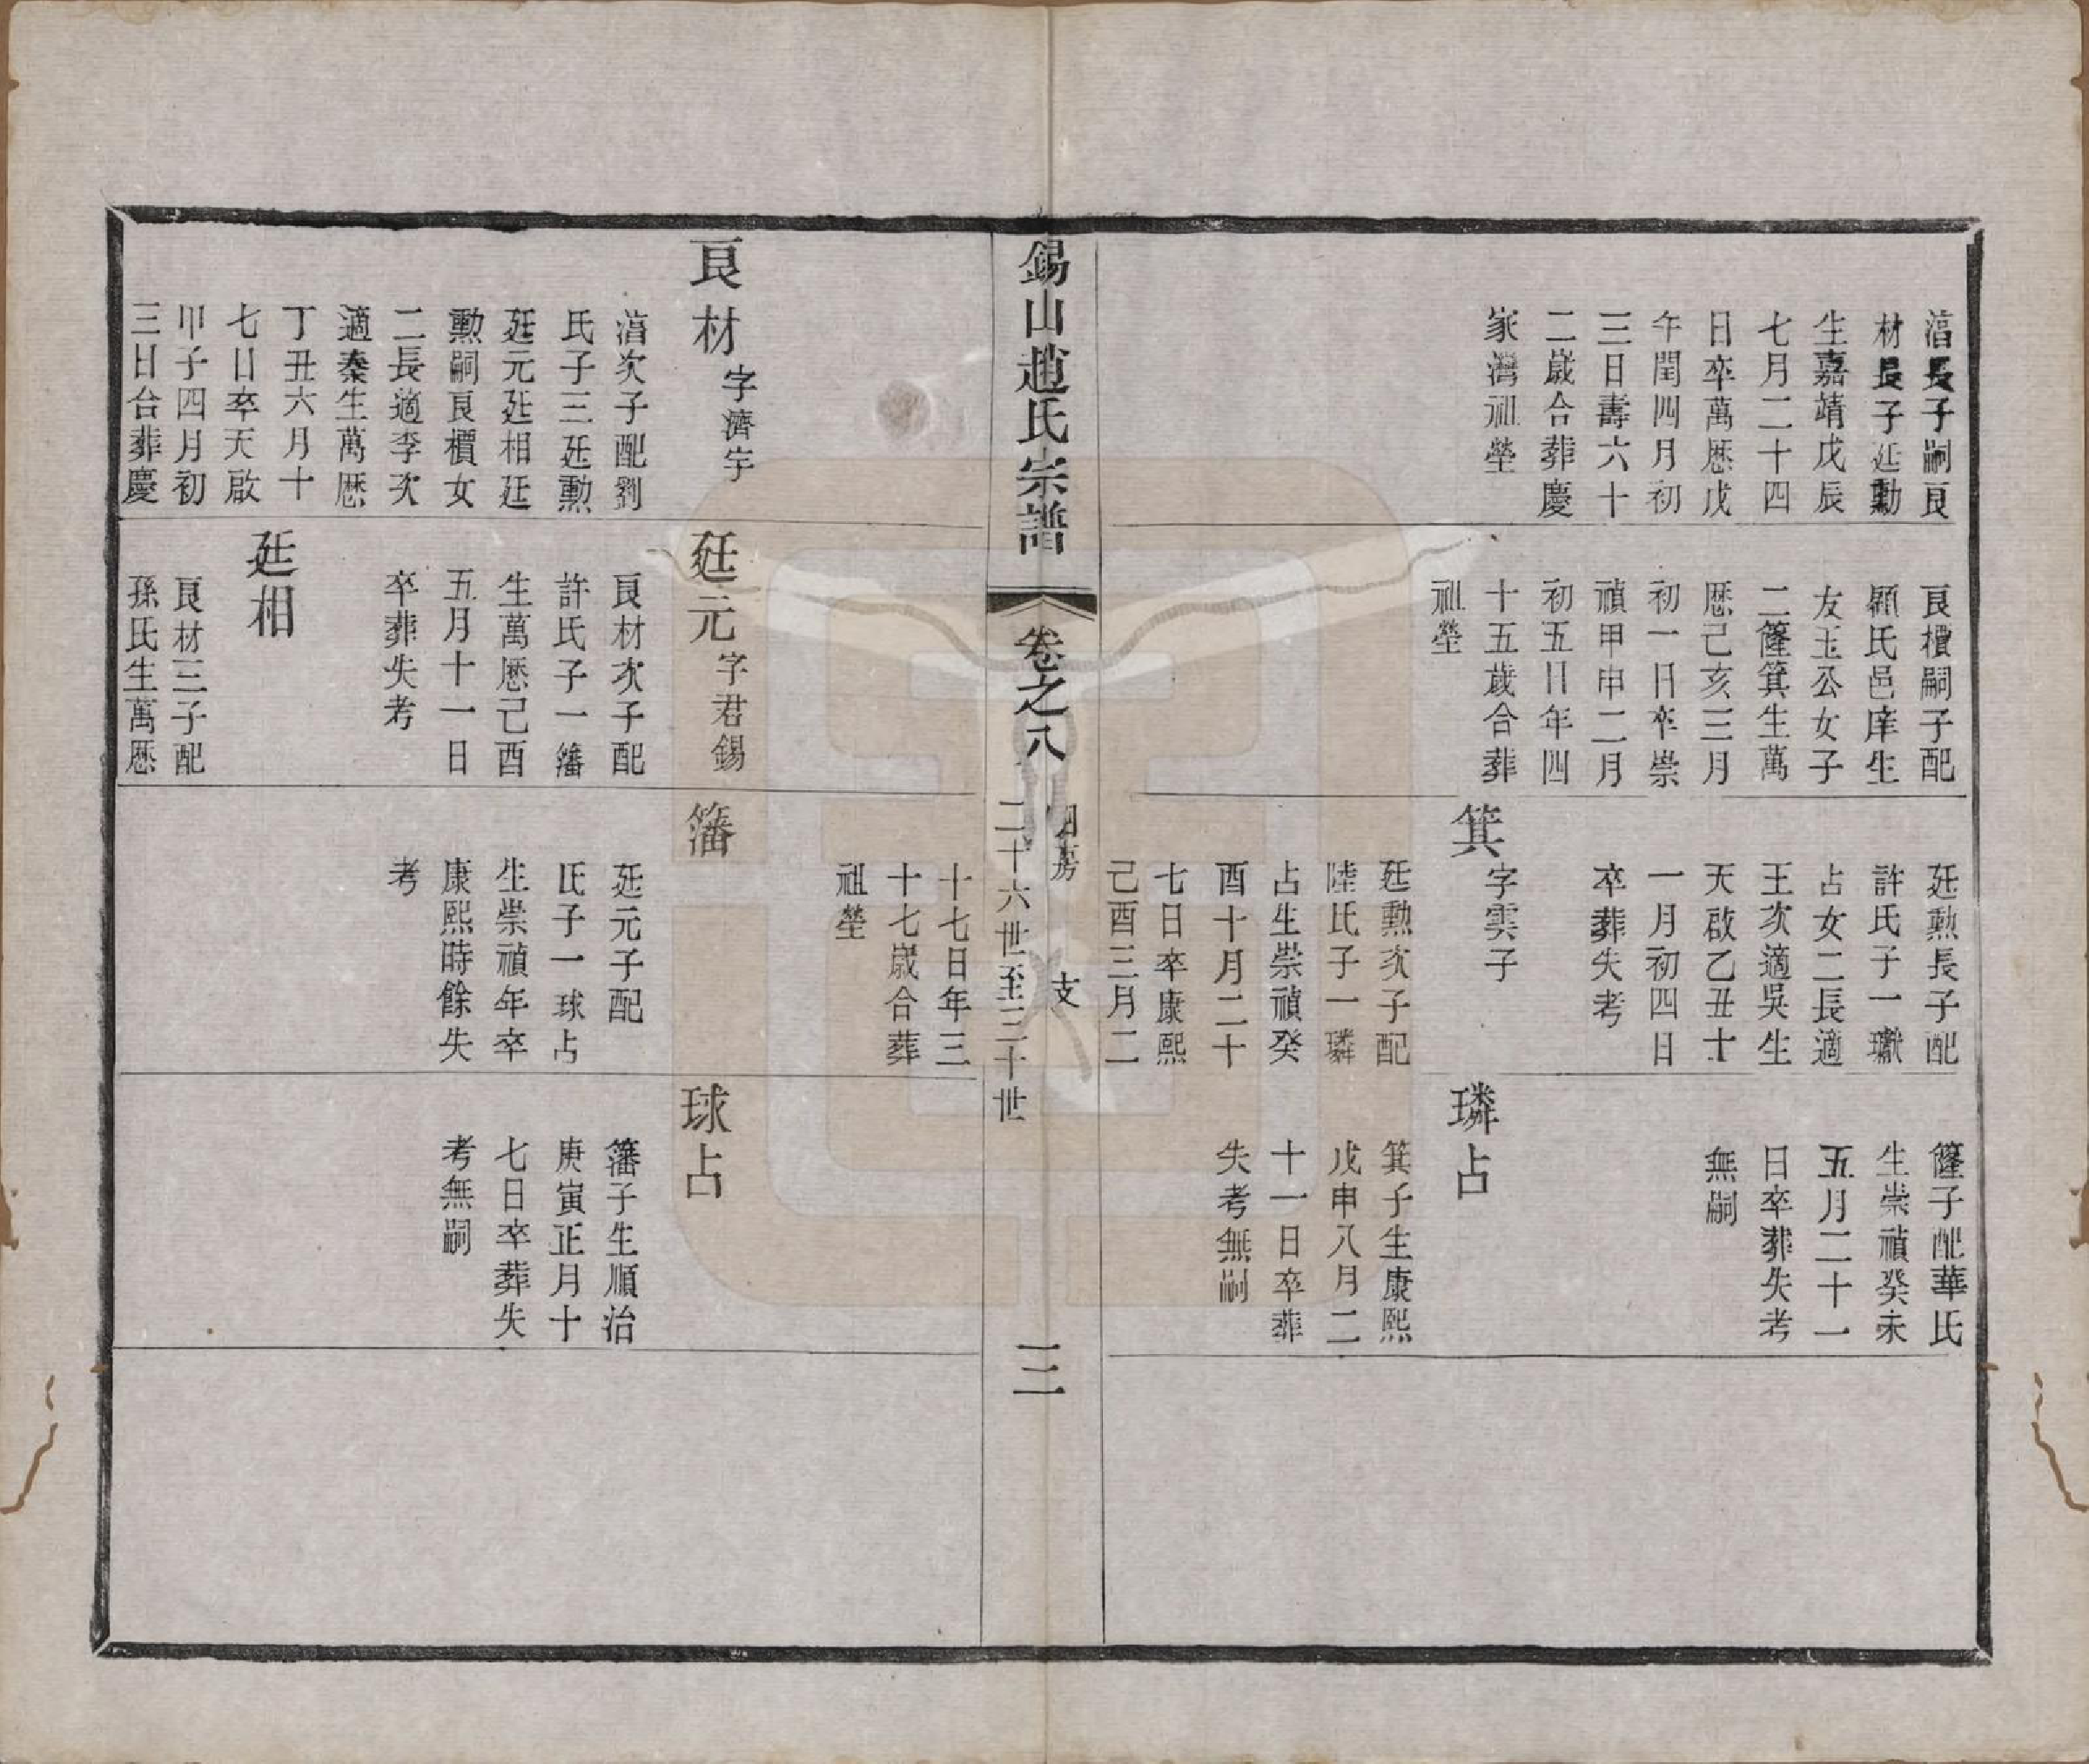 湻長子嗣艮
材長子廷勳
生嘉靖戊辰
七月二十四
日卒萬厯戊
午閏四月初
三日壽六十
二歲合葬慶
家灣祖塋
艮檟嗣子配
顧氏邑庠生
友玉公女子
二簬箕生萬
厯己亥三月
初一日卒崇
禎甲申二月
初五日年四
十五歲合葬
祖塋
廷勳長子配
許氏子一瓛
占女二長適
王次適吳生
天啟乙丑十
一月初四日
卒葬失考
箕
字雲子
廷勳次子配
陸氏子一璘
占生崇禎癸
酉十月二十
七日卒康熙
己酉三月二
十七日年三
十七歲合葬
祖塋
子配華氏
生崇禎癸未
五月二十一
日卒葬失考
無嗣
璘占
箕子生康熙
戊申八月二
十一日卒葬
失考無嗣
錫山趙氏宗譜
卷之八
四房 支
二十六世至三十世
三
艮材
字濟宇
湻次子配劉
氏子三廷勳
廷元廷相廷
勳嗣艮檟女
二長適李次
適秦生萬厯
丁丑六月十
七日卒天啟
甲子四月初
三日合葬慶
廷元
字君錫
艮材次子配
許氏子一籓
生萬厯己酉
五月十一日
卒葬失考
廷相
艮材三子配
孫氏生萬厯
籓
廷元子配
氏子一球占
生崇禎年卒
康熙時餘失
考
球占
籓子生順治
庚寅正月十
七日卒葬失
考無嗣